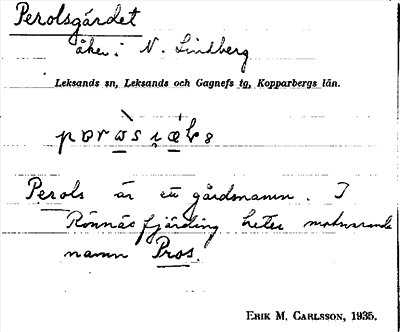 Perolsgärdet
åker i N. Lindberg
Leksands sn, Leksands och Gagnefs tg, Kopparbergs län.
Perols är ett gårdsnamn. I
Rönnäs fjärding heter motsvarande
namn Pros.
ERIK M. CARLSSON, 1935.